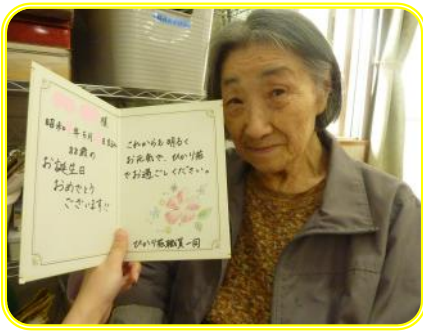 様
昭和 年5月 日
88歳の
お誕生日
おめでとう
ございます!!
これからも明るく
お元気で、ひかり苑
でお過ごしください。
ひかり苑職員一同